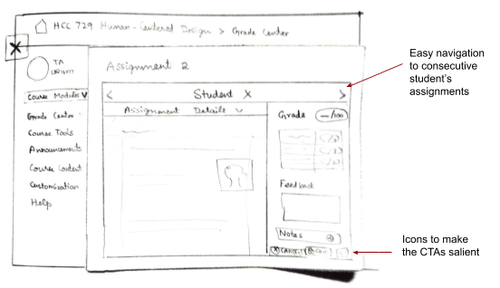 HCC 729 Human-Centered Design > Grade Center
X
TA
Course Modules V
Grade Center
Course Tools
Announcements
Course Content
Customization
Help
Assignment 2
< Student X >
Assignment Details
Grade —/100
Feedback
Notes
CANCEL
Easy navigation
to consecutive
student's
assignments
Icons to make
the CTAs salient